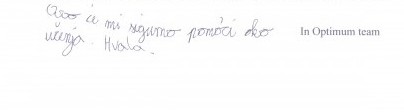 Ovo će mi sigurno pomoći oko
učenja. Hvala.
In Optimum team